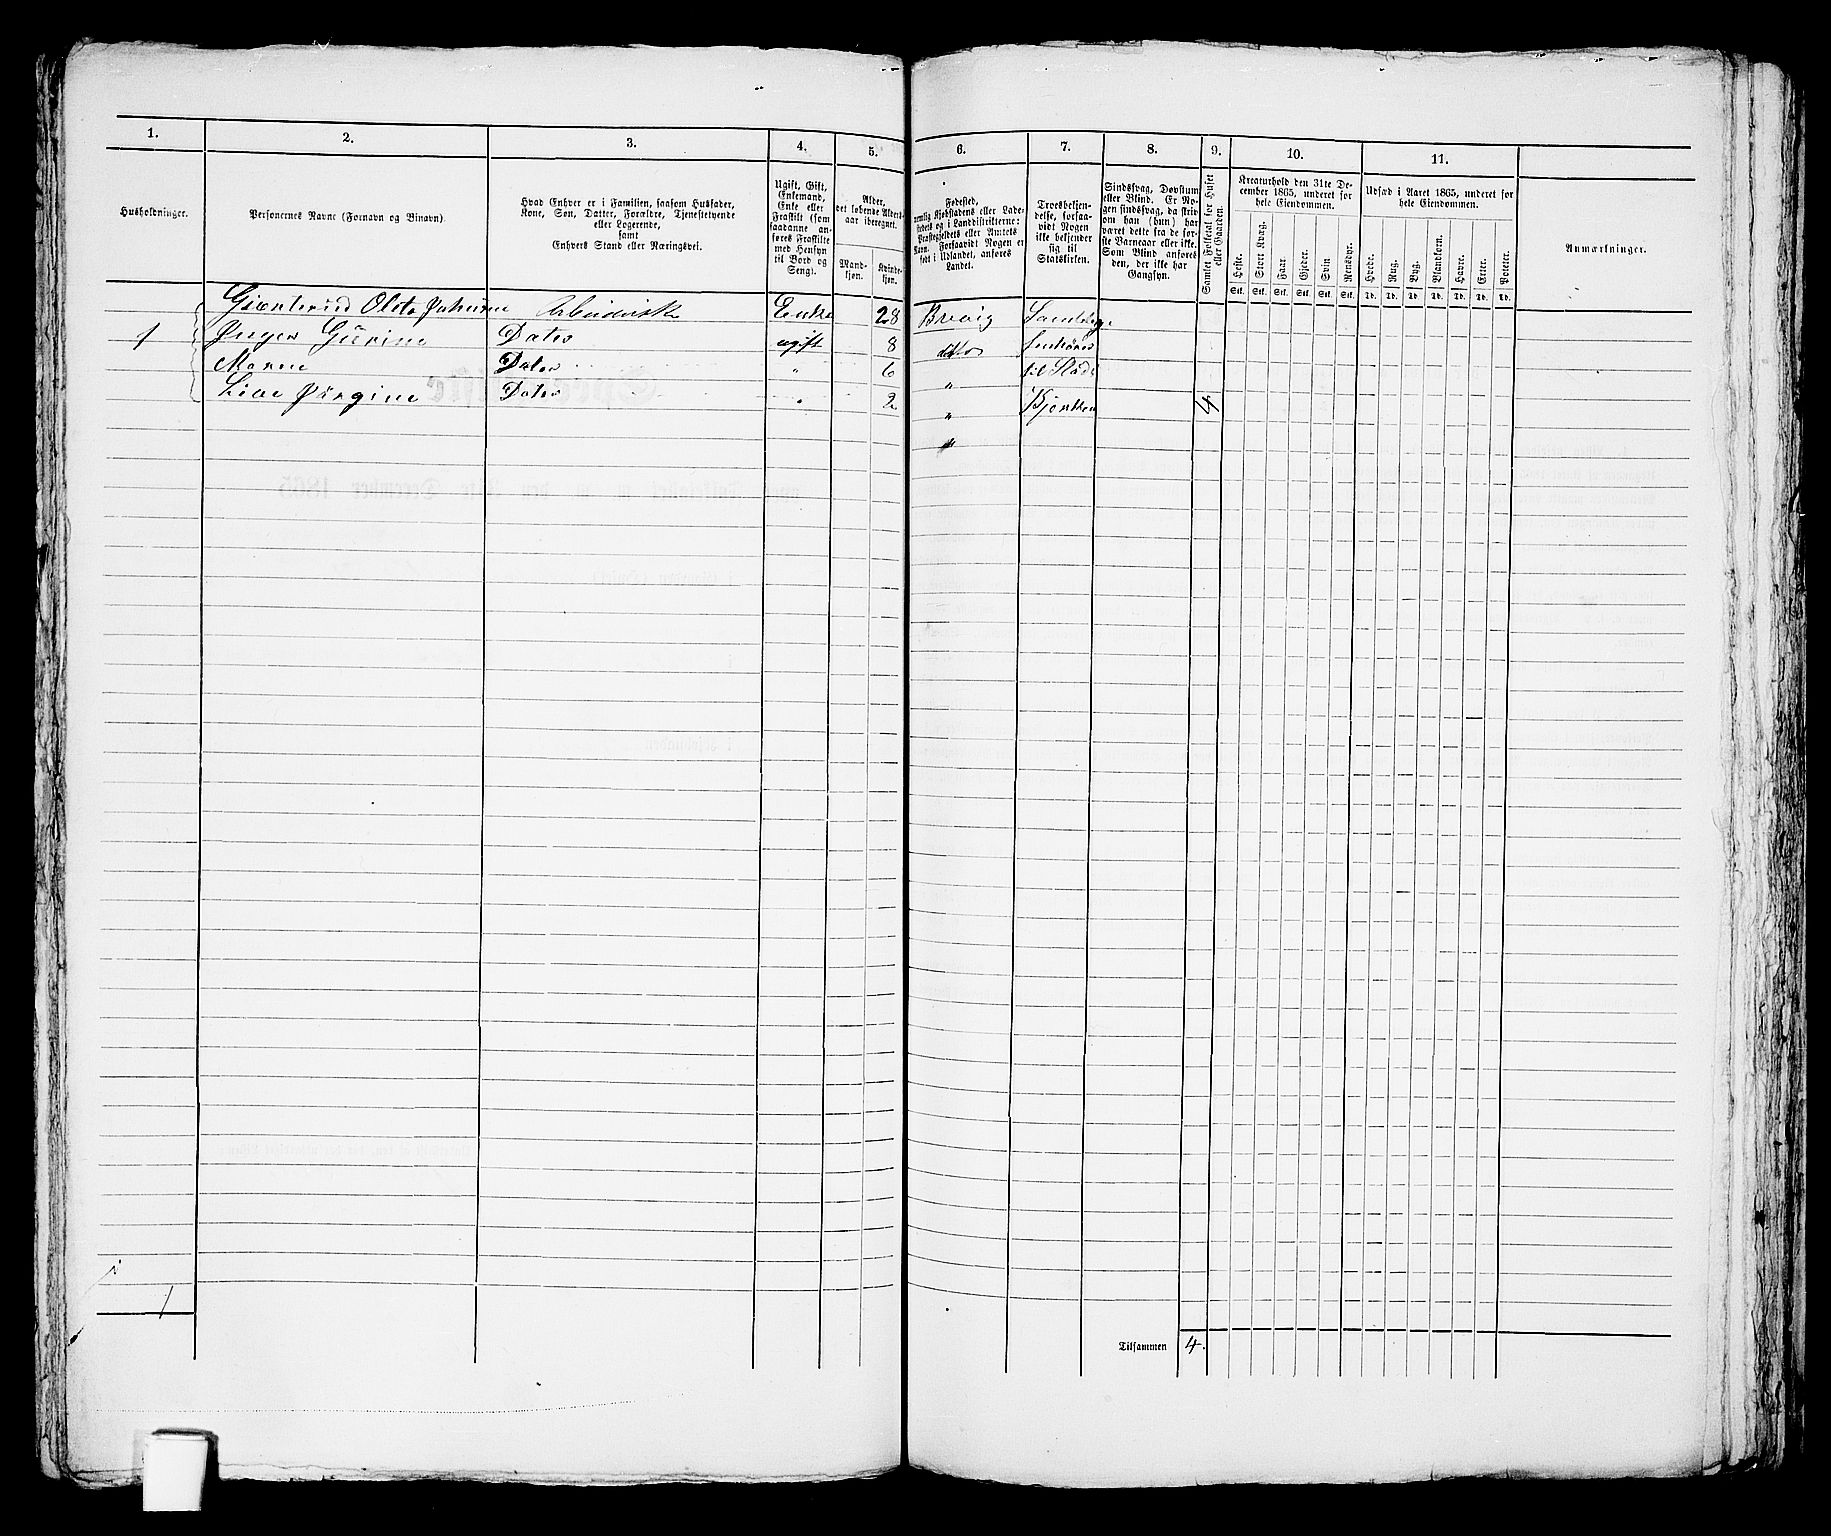 1. 2. 3. 4. 5. 6. 7. 8. 9. 10. 11.
Husholdninger.
Personernes Navne (Fornavn og Binavn).
Hvad Enhver er i Familien, saasom Husfader,
Kone, Søn, Datter, Forældre, Tjenestetyende
eller Logerende,
samt
Enhvers Stand eller Næringsvei.
Ugift, Gift,
Enkemand,
Enke eller
Fraskilt (som
saadanne an-
føres Fraskilte
med Hensyn
til Bord og
Seng).
Alder,
det løbende Alders-
aar iberegnet.
Mand-
kjøn.
Kvinde-
kjøn.
Fødested,
nemlig Kjøbstadens eller Lade-
stedets og i Landdistrikterne:
Præstegjeldets eller Amtets
Navn. Forsaavidt Nogen er
født i Udlandet, anføres
Landet.
Troesbekjen-
delse, forsaa-
vidt Nogen
ikke bekjender
sig til
Statskirken.
Sindssvag, Døvstum
eller Blind. Er No-
gen sindssvag, da skriv
om han (hun) har
været dette fra de før-
ste Barneaar eller ikke.
Som Blind anføres
den, der ikke har
Gangsyn.
Samlet Folketal for Huset
eller Gaarden.
Kreaturhold den 31te De-
cember 1865, underet for
hele Eiendommen.
Heste. Stort Kvæg. Faar. Gjeder. Svin Rensdyr.
Stk. Stk. Stk. Stk. Stk. Stk.
Udsæd i Aaret 1865, underet for
hele Eiendommen.
Hvede. Rug. Byg. Blandkorn. Havre. Erter. Poteter.
Td. Td. Td. Td. Td. Td. Td.
Anmærkninger.
Olsta Enke 28 Brevig
1 Inger Gurine Dater ugift 8 ditto
Maren Dater " 6 " til Stads
Live Jørgine Dater " 2 " Kjerken 4
"
1
Tilsammen 4.